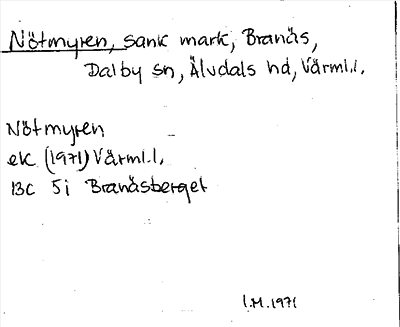 Nötmyren, sank mark, Branäs,
Dalby sn, Älvdals hd, Värml.l.
Nötmyren
ek (1971) Värml.l.
13C 5i Branäsberget
I.M. 1971